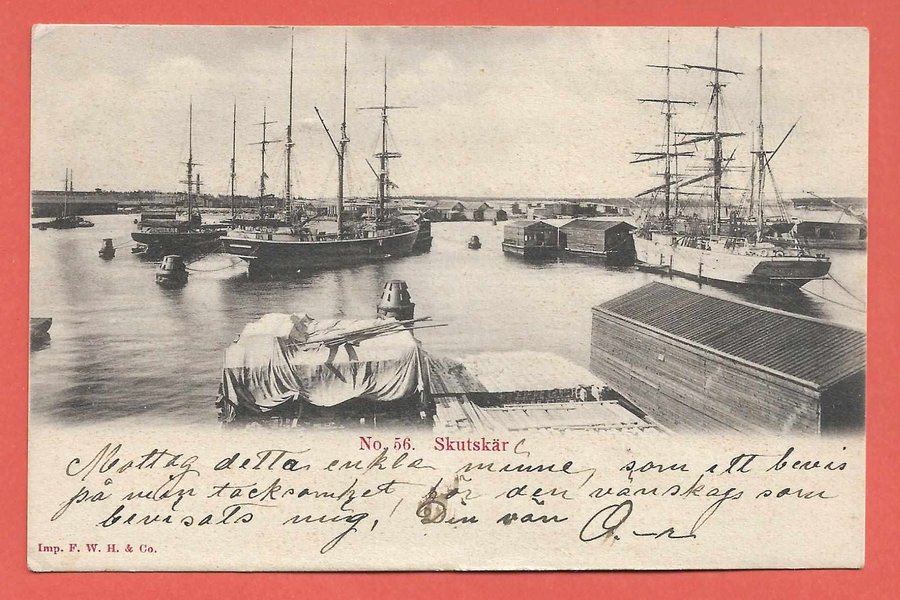 No. 56. Skutskär
Mottag detta enkla minne, som ett bevis
på min tacksamhet, för den vänskap som
bevisats mig, Din vän O—r
Imp. F. W. H. & Co.